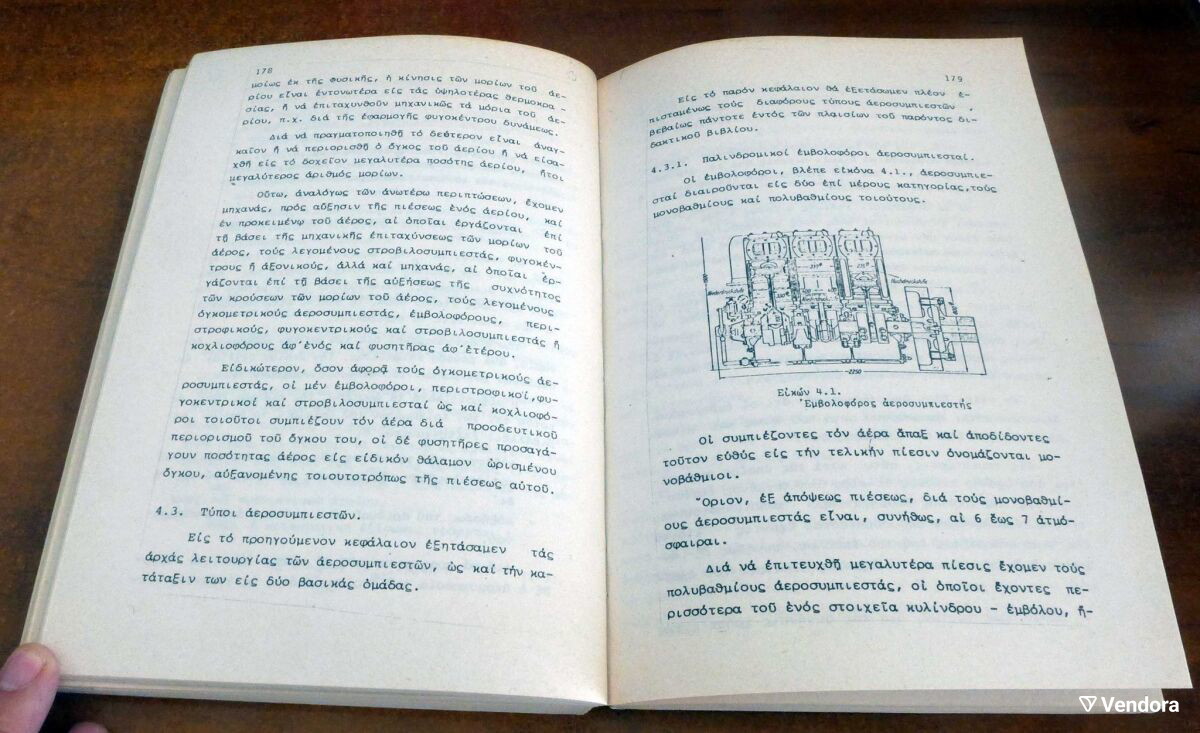 178
μοίως ἐκ τῆς Φυσικῆς, ἡ κίνησις τῶν μορίων τοῦ ἀε-
ρίου εἶναι ἐντονωτέρα εἰς τάς ὑψηλοτέρας θερμοκρα-
σίας, ἤ νά ἐπιταχυνθοῦν μηχανικῶς τά μόρια τοῦ ἀε-
ρίου, π.χ. διά τῆς ἐφαρμογῆς φυγοκέντρου δυνάμεως.
Διά νά πραγματοποιηθῇ τό δεύτερον εἶναι ἀναγ-
καῖον ἤ νά περιορισθῇ ὁ ὄγκος τοῦ ἀερίου ἤ νά εἰσα-
χθῇ εἰς τό δοχεῖον μεγαλυτέρα ποσότης ἀερίου, ἤτοι
μεγαλύτερος ἀριθμός μορίων.
Οὕτω, ἀναλόγως τῶν ἀνωτέρω περιπτώσεων, ἔχομεν
μηχανάς, πρός αὔξησιν τῆς πιέσεως ἑνός ἀερίου, καί
ἐν προκειμένῳ τοῦ ἀέρος, αἱ ὁποῖαι ἐργάζονται ἐπί
τῇ βάσει τῆς μηχανικῆς ἐπιταχύνσεως τῶν μορίων τοῦ
ἀέρος, τούς λεγομένους στροβιλοσυμπιεστάς, φυγοκέν-
τρους ἤ ἀξονικούς, ἀλλά καί μηχανάς, αἱ ὁποῖαι ἐρ-
γάζονται ἐπί τῇ βάσει τῆς αὐξήσεως τῆς συχνότητος
τῶν κρούσεων τῶν μορίων τοῦ ἀέρος, τούς λεγομένους
ὀγκομετρικούς ἀεροσυμπιεστάς, ἐμβολοφόρους, περι-
στροφικούς, φυγοκεντρικούς καί στροβιλοσυμπιεστάς ἤ
κοχλιοφόρους ἀφ'ἑνός καί φυσητῆρας ἀφ'ἑτέρου.
Εἰδικώτερον, ὅσον ἀφορᾷ τούς ὀγκομετρικούς ἀε-
ροσυμπιεστάς, οἱ μέν ἐμβολοφόροι, περιστροφικοί,φυ-
γοκεντρικοί καί στροβιλοσυμπιεσταί ὡς καί κοχλιοφό-
ροι τοιοῦτοι συμπιέζουν τόν ἀέρα διά προοδευτικοῦ
περιορισμοῦ τοῦ ὄγκου του, οἱ δέ φυσητῆρες προσαγά-
γουν ποσότητας ἀέρος εἰς εἰδικόν θάλαμον ὡρισμένου
ὄγκου, αὐξανομένης τοιουτοτρόπως τῆς πιέσεως αὐτοῦ.
4.3. Τύποι ἀεροσυμπιεστῶν.
Εἰς τό προηγούμενον κεφάλαιον ἐξητάσαμεν τάς
ἀρχάς λειτουργίας τῶν ἀεροσυμπιεστῶν, ὡς καί τήν κα-
τάταξιν των εἰς δύο βασικάς ὁμάδας.
179
Εἰς τό παρόν κεφάλαιον θά ἐξετάσωμεν πλέον ἐ-
πισταμένως τούς διαφόρους τύπους ἀεροσυμπιεστῶν ,
βεβαίως πάντοτε ἐντός τῶν πλαισίων τοῦ παρόντος δι-
δακτικοῦ βιβλίου.
4.3.1. Παλινδρομικοί ἐμβολοφόροι ἀεροσυμπιεσταί.
Οἱ ἐμβολοφόροι, βλέπε εἰκόνα 4.1., ἀεροσυμπιε-
σταί διαιροῦνται εἰς δύο ἐπί μέρους κατηγορίας,τούς
μονοβαθμίους καί πολυβαθμίους τοιούτους.
2250
Εἰκών 4.1.
Ἐμβολοφόρος ἀεροσυμπιεστής
Οἱ συμπιέζοντες τόν ἀέρα ἅπαξ καί ἀποδίδοντες
τοῦτον εὐθύς εἰς τήν τελικήν πίεσιν ὀνομάζονται μο-
νοβάθμιοι.
Ὅριον, ἐξ ἀπόψεως πιέσεως, διά τούς μονοβαθμί-
ους ἀεροσυμπιεστάς εἶναι, συνήθως, αἱ 6 ἕως 7 ἀτμό-
σφαιραι.
Διά νά ἐπιτευχθῇ μεγαλυτέρα πίεσις ἔχομεν τούς
πολυβαθμίους ἀεροσυμπιεστάς, οἱ ὁποῖοι ἔχοντες πε-
ρισσότερα τοῦ ἑνός στοιχεῖα κυλίνδρου - ἐμβόλου, ἤ-
Vendora